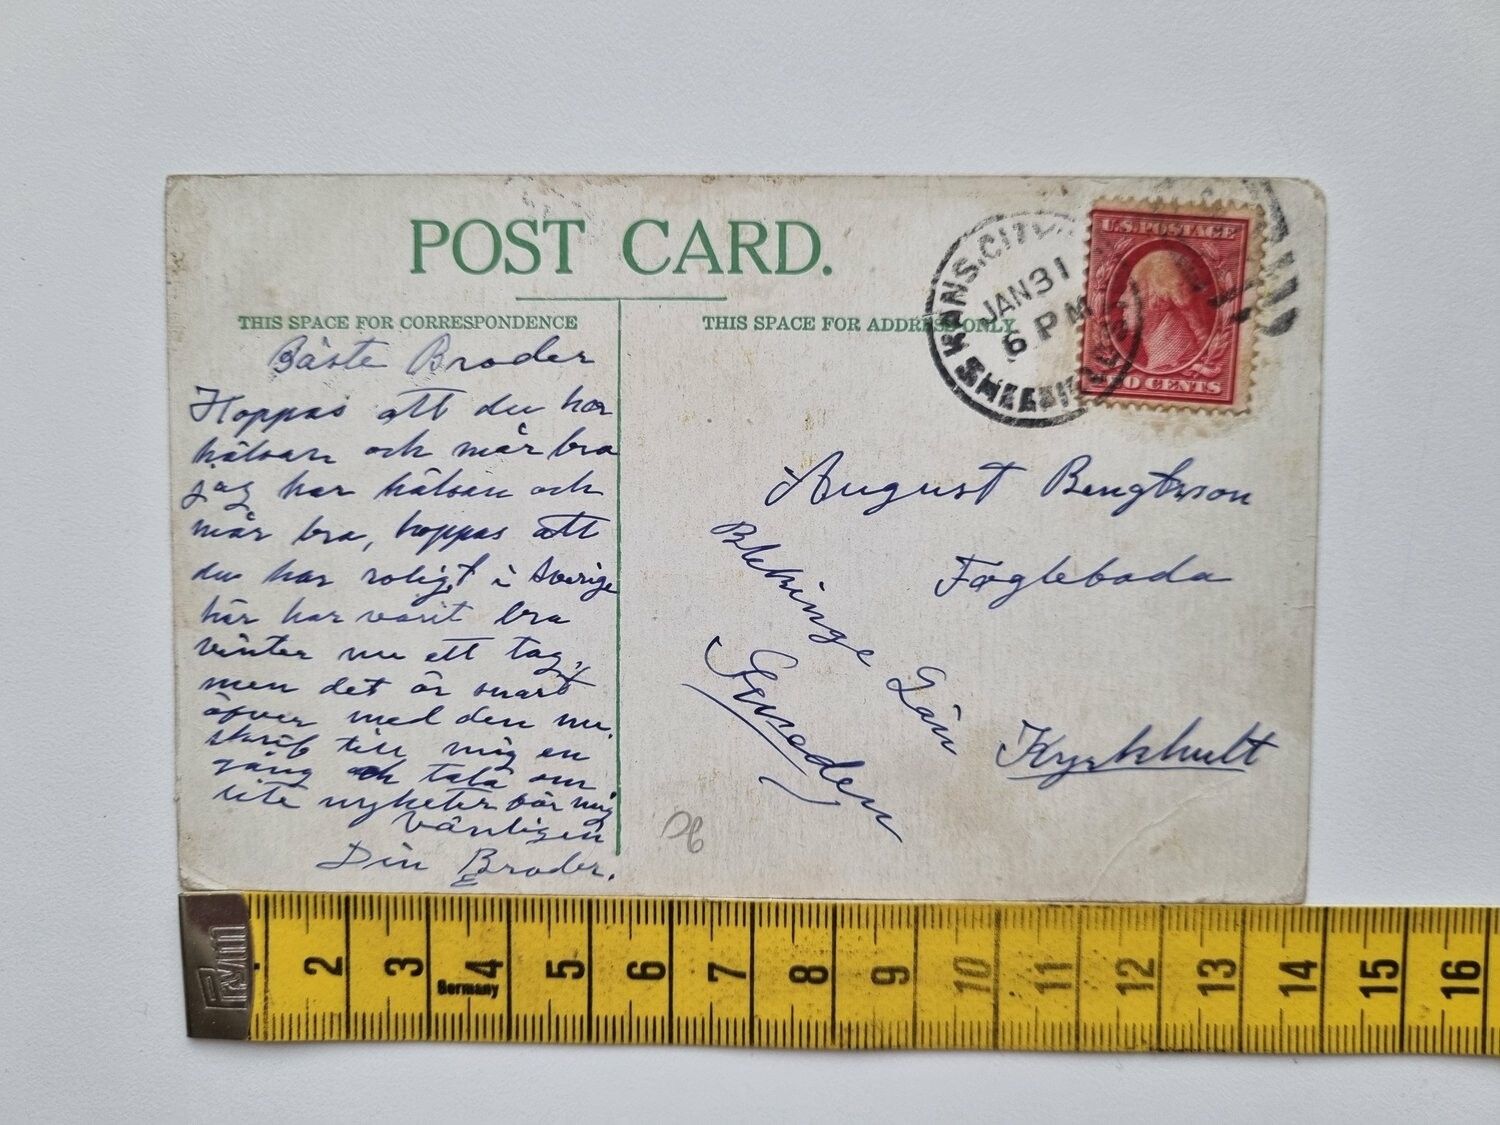 POST CARD.
THIS SPACE FOR CORRESPONDENCE
THIS SPACE FOR ADDRESS ONLY
KANS. CITY
JAN 31
6 PM
U.S. POSTAGE
TWO CENTS
Bäste Broder
Hoppas att du har
hälsan och mår bra
jag har hälsan och
mår bra, hoppas att
du har roligt i Sverige
här har varit bra
vinter nu ett tag,
men det är snart
öfver med den nu.
skrif till mig en
gång och tala om
lite nyheter för mig
Vänligen
Din Broder.
August Bengtsson
Fogleboda
Blekinge Län
Kyrkhult
Sweden
06
Prym
2 3 4 5 6 7 8 9 10 11 12 13 14 15 16
Germany